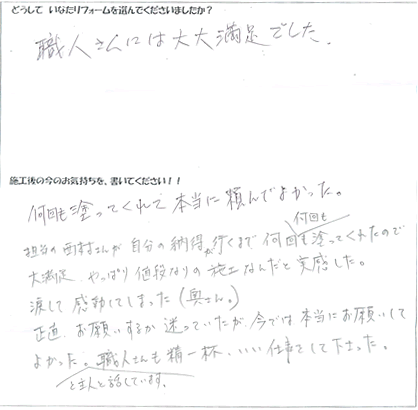 どうして いなだリフォームを選んでくださいましたか？
職人さんには大大満足でした。
施工後の今のお気持ちを、書いてください！！
何回も塗ってくれて本当に頼んでよかった。
何回も
担当の西村さんが自分の納得が行くまで何回も塗ってくれたので
大満足。やっぱり値段なりの施工なんだと実感した。
涙して感動してしまった（奥さん。）
正直、お願いするか迷っていたが、今では本当にお願いして
よかった。職人さんも精一杯、いい仕事をして下さった。
と主人と話しています。